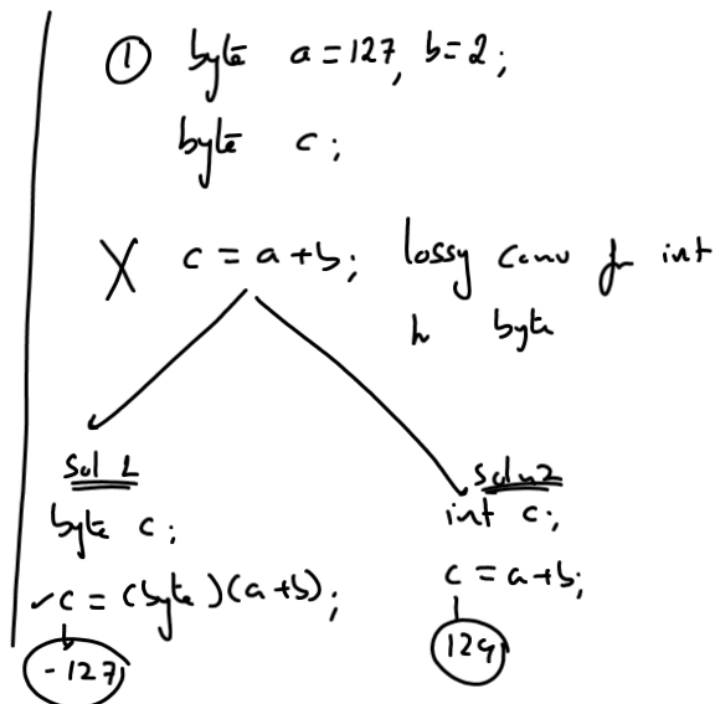 ① byte a = 127, b = 2;
byte c;
X c = a + b; lossy conv fr int
to byte
Sol 1
byte c;
✓c = (byte)(a+b);
-127
Soln 2
int c;
c = a+b;
129